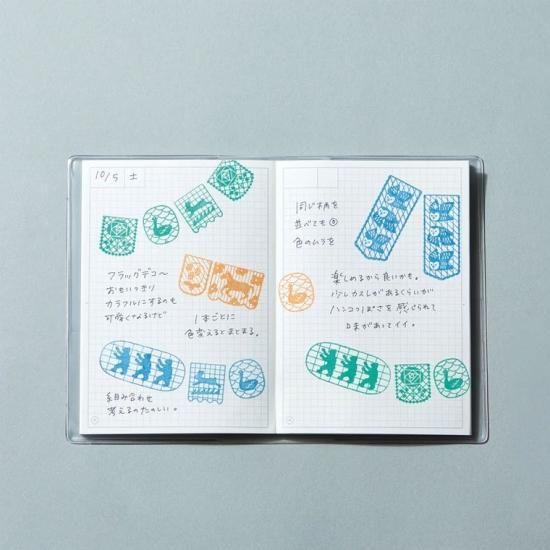 10/5 土
フラッグデコ〜
おもいっきり
カラフルにするのも
可愛くなるけど
1本ごとに
色変えるとまとまる。
組み合わせ
考えるのたのしい。
同じ柄を
並べても
色のムラを
楽しめるから良いかも。
少しカスレがあるくらいが
ハンコっぽさを感じられて
味があってイイ。